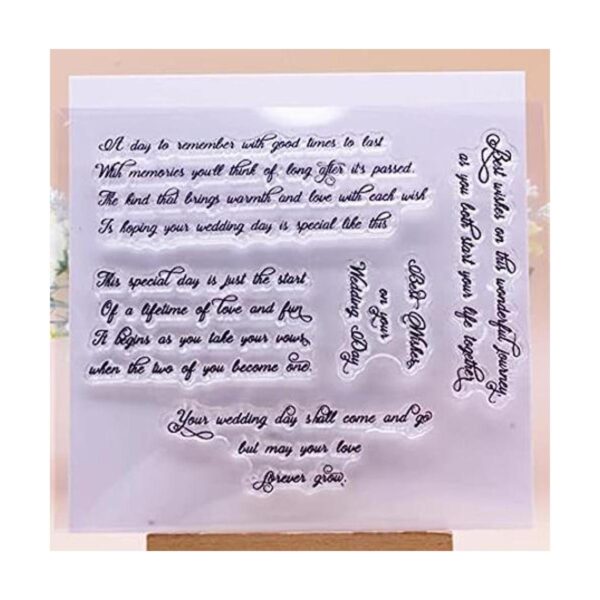 A day to remember with good times to last
With memories you'll think of, long after it's passed.
The kind that brings warmth and love with each wish
Is hoping your wedding day is special like this
This special day is just the start
Of a lifetime of love and fun,
It begins as you take your vows,
when the two of you become one.
Best Wishes
on your
Wedding Day
Best wishes on this wonderful journey,
as you both start your life together
Your wedding day shall come and go
but may your love
forever grow.